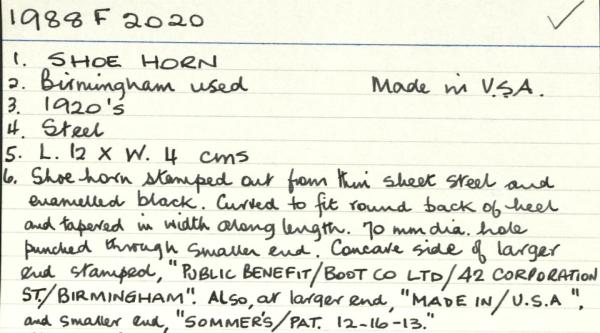 1988 F 2020
1. SHOE HORN
2. Birmingham used Made in U.S.A.
3. 1920's
4. Steel
5. L. 12 X W. 4 cms
6. Shoe horn stamped out from thin sheet steel and
enamelled black. Curved to fit round back of heel
and tapered in width along length. 70 mm dia. hole
punched through smaller end. Concave side of larger
end stamped, "PUBLIC BENEFIT/BOOT CO LTD/42 CORPORATION
ST/BIRMINGHAM". Also, at larger end, "MADE IN/U.S.A",
and smaller end, "SOMMER'S/PAT. 12-16-13."